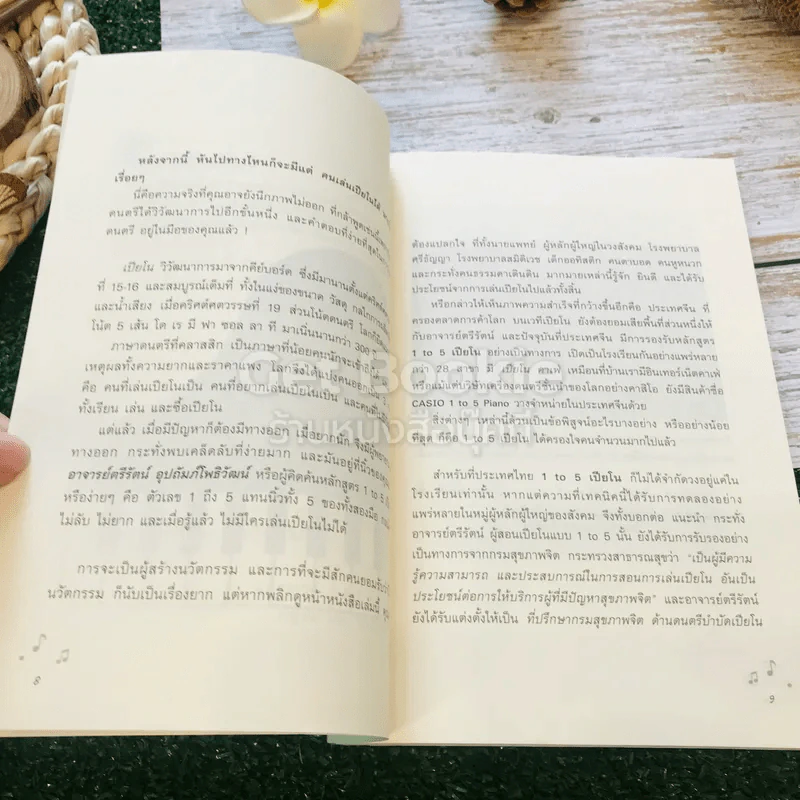 หลังจากนี้ หันไปทางไหนก็จะมีแต่ คนเล่นเปียโนได้
เรื่อยๆ
นี่คือความจริงที่คุณอาจยังนึกภาพไม่ออก ที่กล้าพูดเช่นนี้
ดนตรีได้วิวัฒนาการไปอีกขั้นหนึ่ง และคำตอบที่ง่ายที่สุด
ดนตรี อยู่ในมือของคุณแล้ว !
เปียโน วิวัฒนาการมาจากคีย์บอร์ด ซึ่งมีมานานตั้งแต่
ที่ 15-16 และสมบูรณ์เต็มที่ ทั้งในแง่ของขนาด วัสดุ กลไก
และน้ำเสียง เมื่อคริสต์ศตวรรษที่ 19 ส่วนโน้ตดนตรี
โน้ต 5 เส้น โด เร มี ฟา ซอล ลา ที มาเนิ่นนานกว่า 300 ปี
ภาษาดนตรีที่คลาสสิก เป็นภาษาที่น้อยคนนักจะเข้าถึง
เหตุผลทั้งความยากและราคาแพง โลกจึงได้แบ่งคนออกเป็น
คือ คนที่เล่นเปียโนเป็น คนที่อยากเล่นเปียโนเป็น และคน
ทั้งเรียน เล่น และซื้อเปียโน
แต่แล้ว เมื่อมีปัญหาก็ต้องมีทางออก เมื่อยากนัก จึงมีผู้
ทางออก กระทั่งพบเคล็ดลับที่ง่ายมาก และมันอยู่ที่นิ้วของ
อาจารย์ตรีรัตน์ อุปถัมภ์โพธิวัฒน์ หรือผู้คิดค้นหลักสูตร 1 to 5
หรือง่ายๆ คือ ตัวเลข 1 ถึง 5 แทนนิ้วทั้ง 5 ของทั้งสองมือ
ไม่ลับ ไม่ยาก และเมื่อรู้แล้ว ไม่มีใครเล่นเปียโนไม่ได้
การจะเป็นผู้สร้างนวัตกรรม และการที่จะมีสักคนยอมรับ
นวัตกรรม ก็นับเป็นเรื่องยาก แต่หากพลิกดูหน้าหนังสือเล่มนี้
8
ต้องแปลกใจ ที่ทั้งนายแพทย์ ผู้หลักผู้ใหญ่ในวงสังคม โรงพยาบาล
ศรีธัญญา โรงพยาบาลสมิติเวช เด็กออทิสติก คนตาบอด คนหูหนวก
และกระทั่งคนธรรมดาเดินดิน มากมายเหล่านี้รู้จัก ยินดี และได้รับ
ประโยชน์จากการเล่นเปียโนไปแล้วทั้งสิ้น
หรือกล่าวให้เห็นภาพความสำเร็จที่กว้างขึ้นอีกคือ ประเทศจีน ที่
ครองตลาดการค้าโลก บนเวทีเปียโน ยังต้องยอมเสียพื้นที่ส่วนหนึ่งให้
กับอาจารย์ตรีรัตน์ และปัจจุบันที่ประเทศจีน มีการรองรับหลักสูตร
1 to 5 เปียโน อย่างเป็นทางการ เปิดเป็นโรงเรียนกันอย่างแพร่หลาย
กว่า 28 สาขา มี เปียโน คาเฟ่ เหมือนที่บ้านเรามีอินเทอร์เน็ตคาเฟ่
หรือแม้แต่บริษัทเครื่องดนตรีชั้นนำของโลกอย่างคาสิโอ ยังมีสินค้าชื่อ
CASIO 1 to 5 Piano วางจำหน่ายในประเทศจีนด้วย
สิ่งต่างๆ เหล่านี้ล้วนเป็นข้อพิสูจน์อะไรบางอย่าง หรืออย่างน้อย
ที่สุด ก็คือ 1 to 5 เปียโน ได้ครองใจคนจำนวนมากไปแล้ว
สำหรับที่ประเทศไทย 1 to 5 เปียโน ก็ไม่ได้จำกัดวงอยู่แค่ใน
โรงเรียนเท่านั้น หากแต่ความที่เทคนิคนี้ได้รับการทดลองอย่าง
แพร่หลายในหมู่ผู้หลักผู้ใหญ่ของสังคม จึงทั้งบอกต่อ แนะนำ กระทั่ง
อาจารย์ตรีรัตน์ ผู้สอนเปียโนแบบ 1 to 5 นั้น ยังได้รับการรับรองอย่าง
เป็นทางการจากกรมสุขภาพจิต กระทรวงสาธารณสุขว่า "เป็นผู้มีความ
รู้ความสามารถ และประสบการณ์ในการสอนการเล่นเปียโน อันเป็น
ประโยชน์ต่อการให้บริการผู้ที่มีปัญหาสุขภาพจิต" และอาจารย์ตรีรัตน์
ยังได้รับแต่งตั้งให้เป็น ที่ปรึกษากรมสุขภาพจิต ด้านดนตรีบำบัดเปียโน
9
Get Booke
ร้านหนังสือบุ๊คกี้